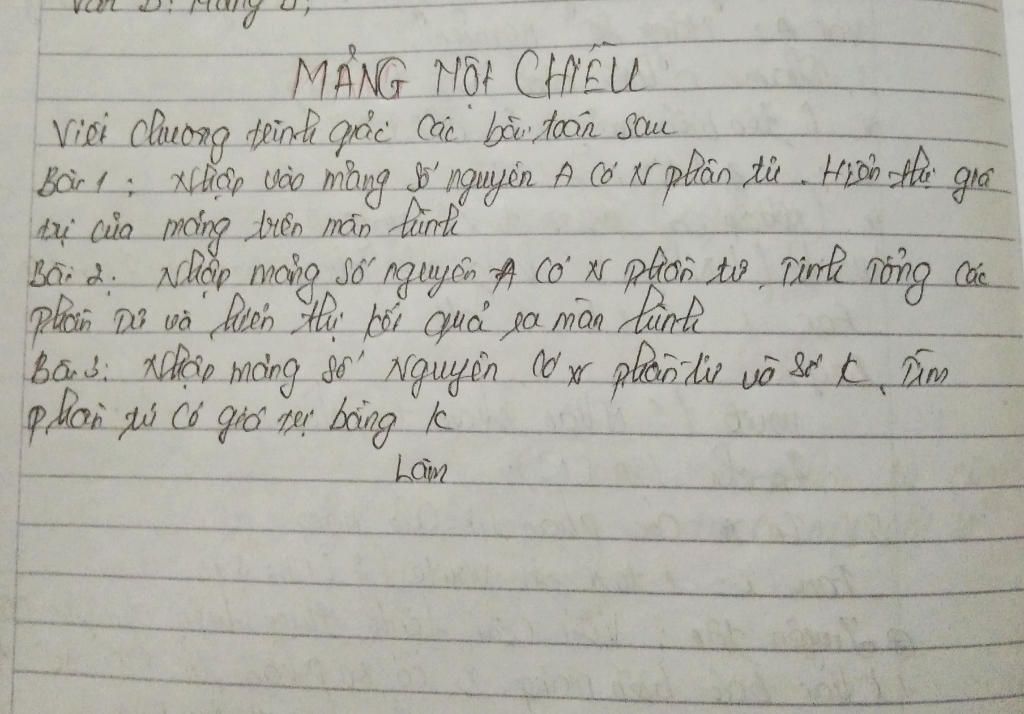 MẢNG MỘT CHIỀU
Viết chương trình giải các bài toán sau
Bài 1: Nhập vào mảng số nguyên A có N phần tử. Hiển thị giá
trị của mảng trên màn hình
Bài 2: Nhập mảng số nguyên A có N phần tử. Tính Tổng các
phần tử và hiển thị kết quả ra màn hình
Bài 3: Nhập mảng số Nguyên có N phần tử và số K. Tìm
phần tử có giá trị bằng K
Làm